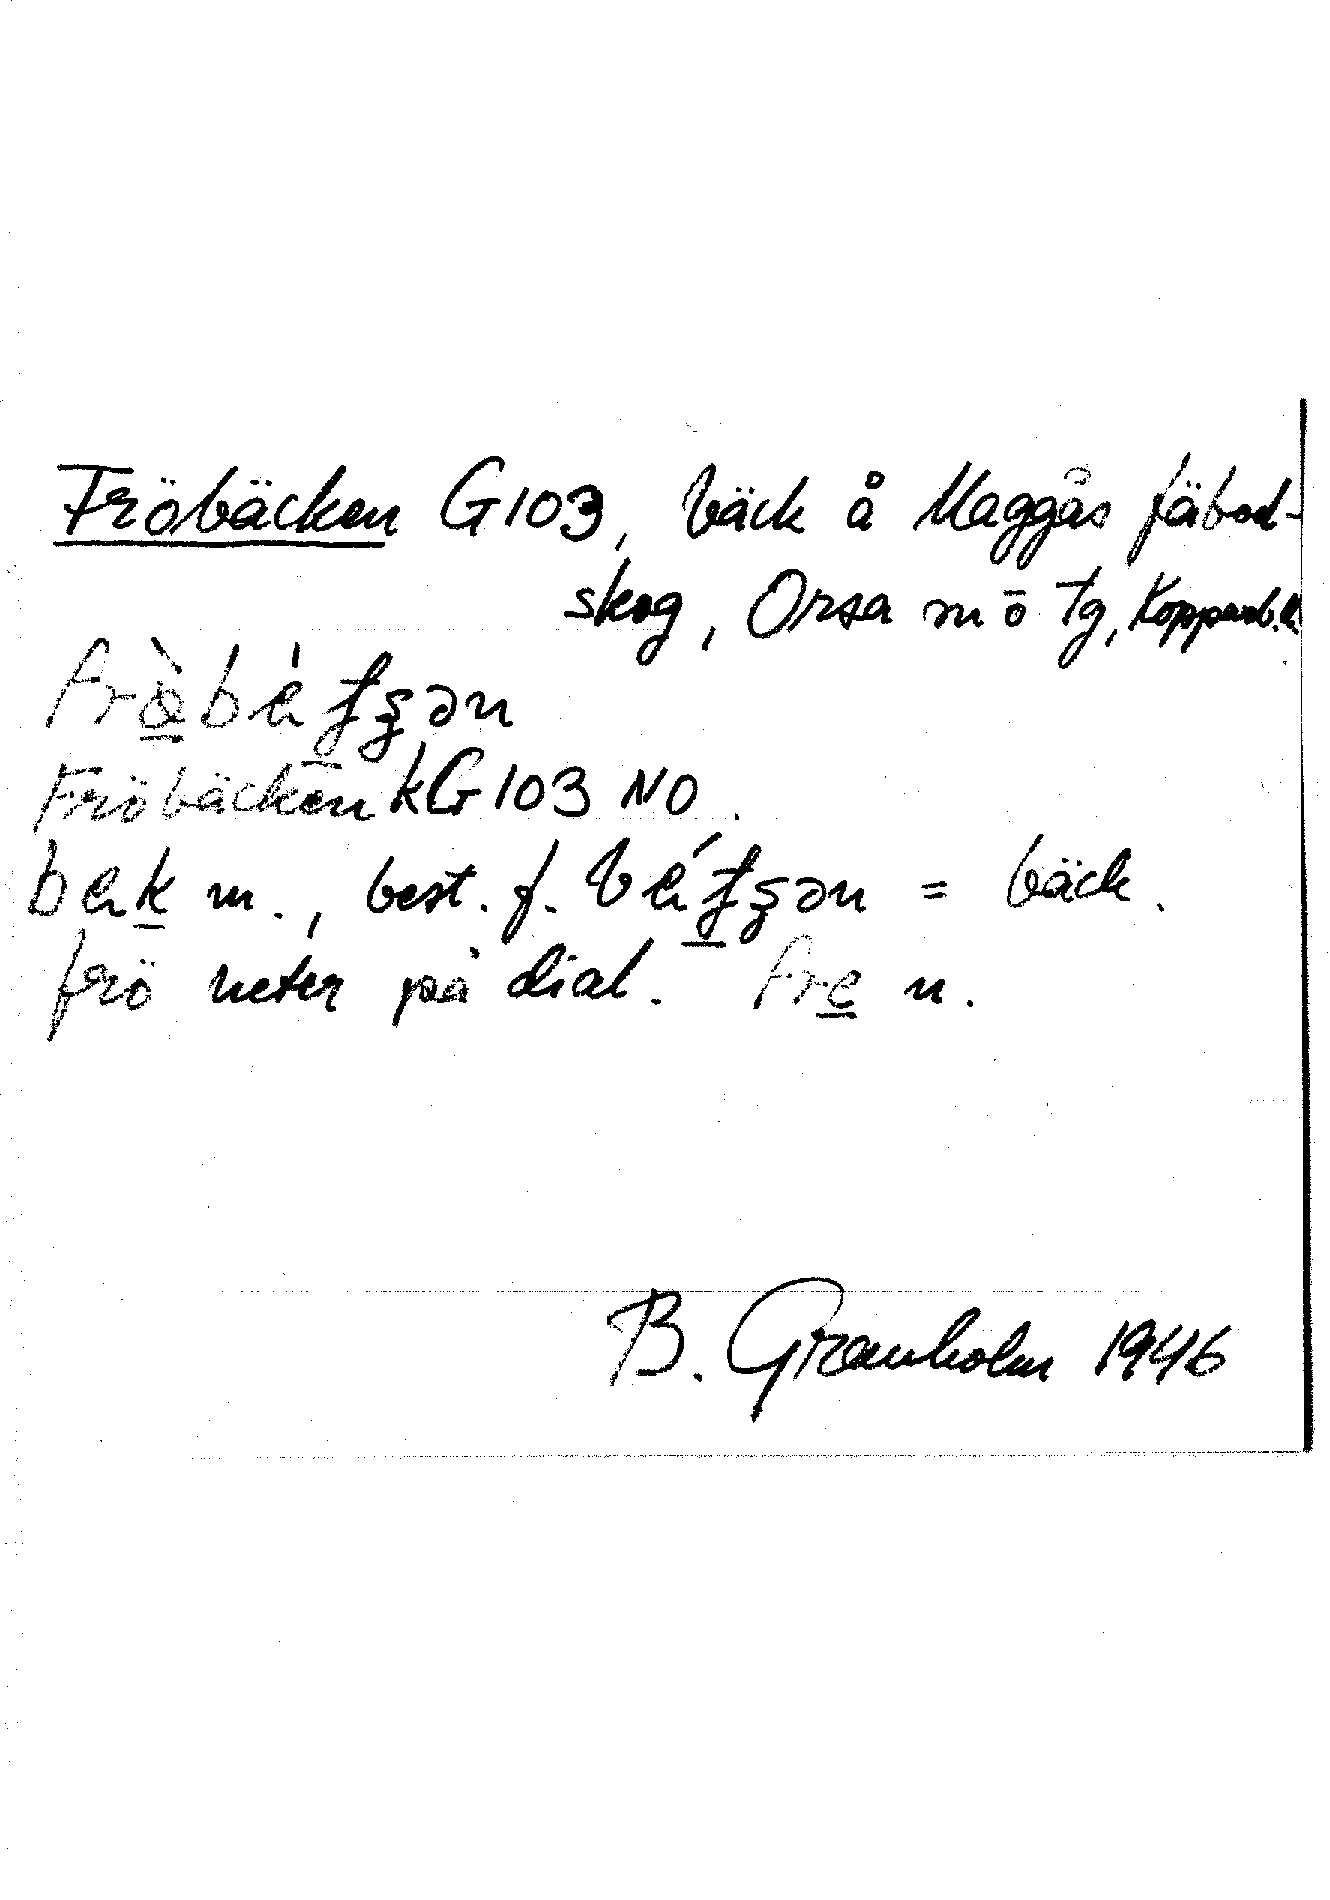 Fröbäcken G103, bäck å Maggås fäbod-
skog, Orsa sn ö Tg, Kopparb. l.
Fröbäcken kG 103 NO.
bek m., best. f. = bäck.
frö heter på dial. fre n.
B. Granholm 1946